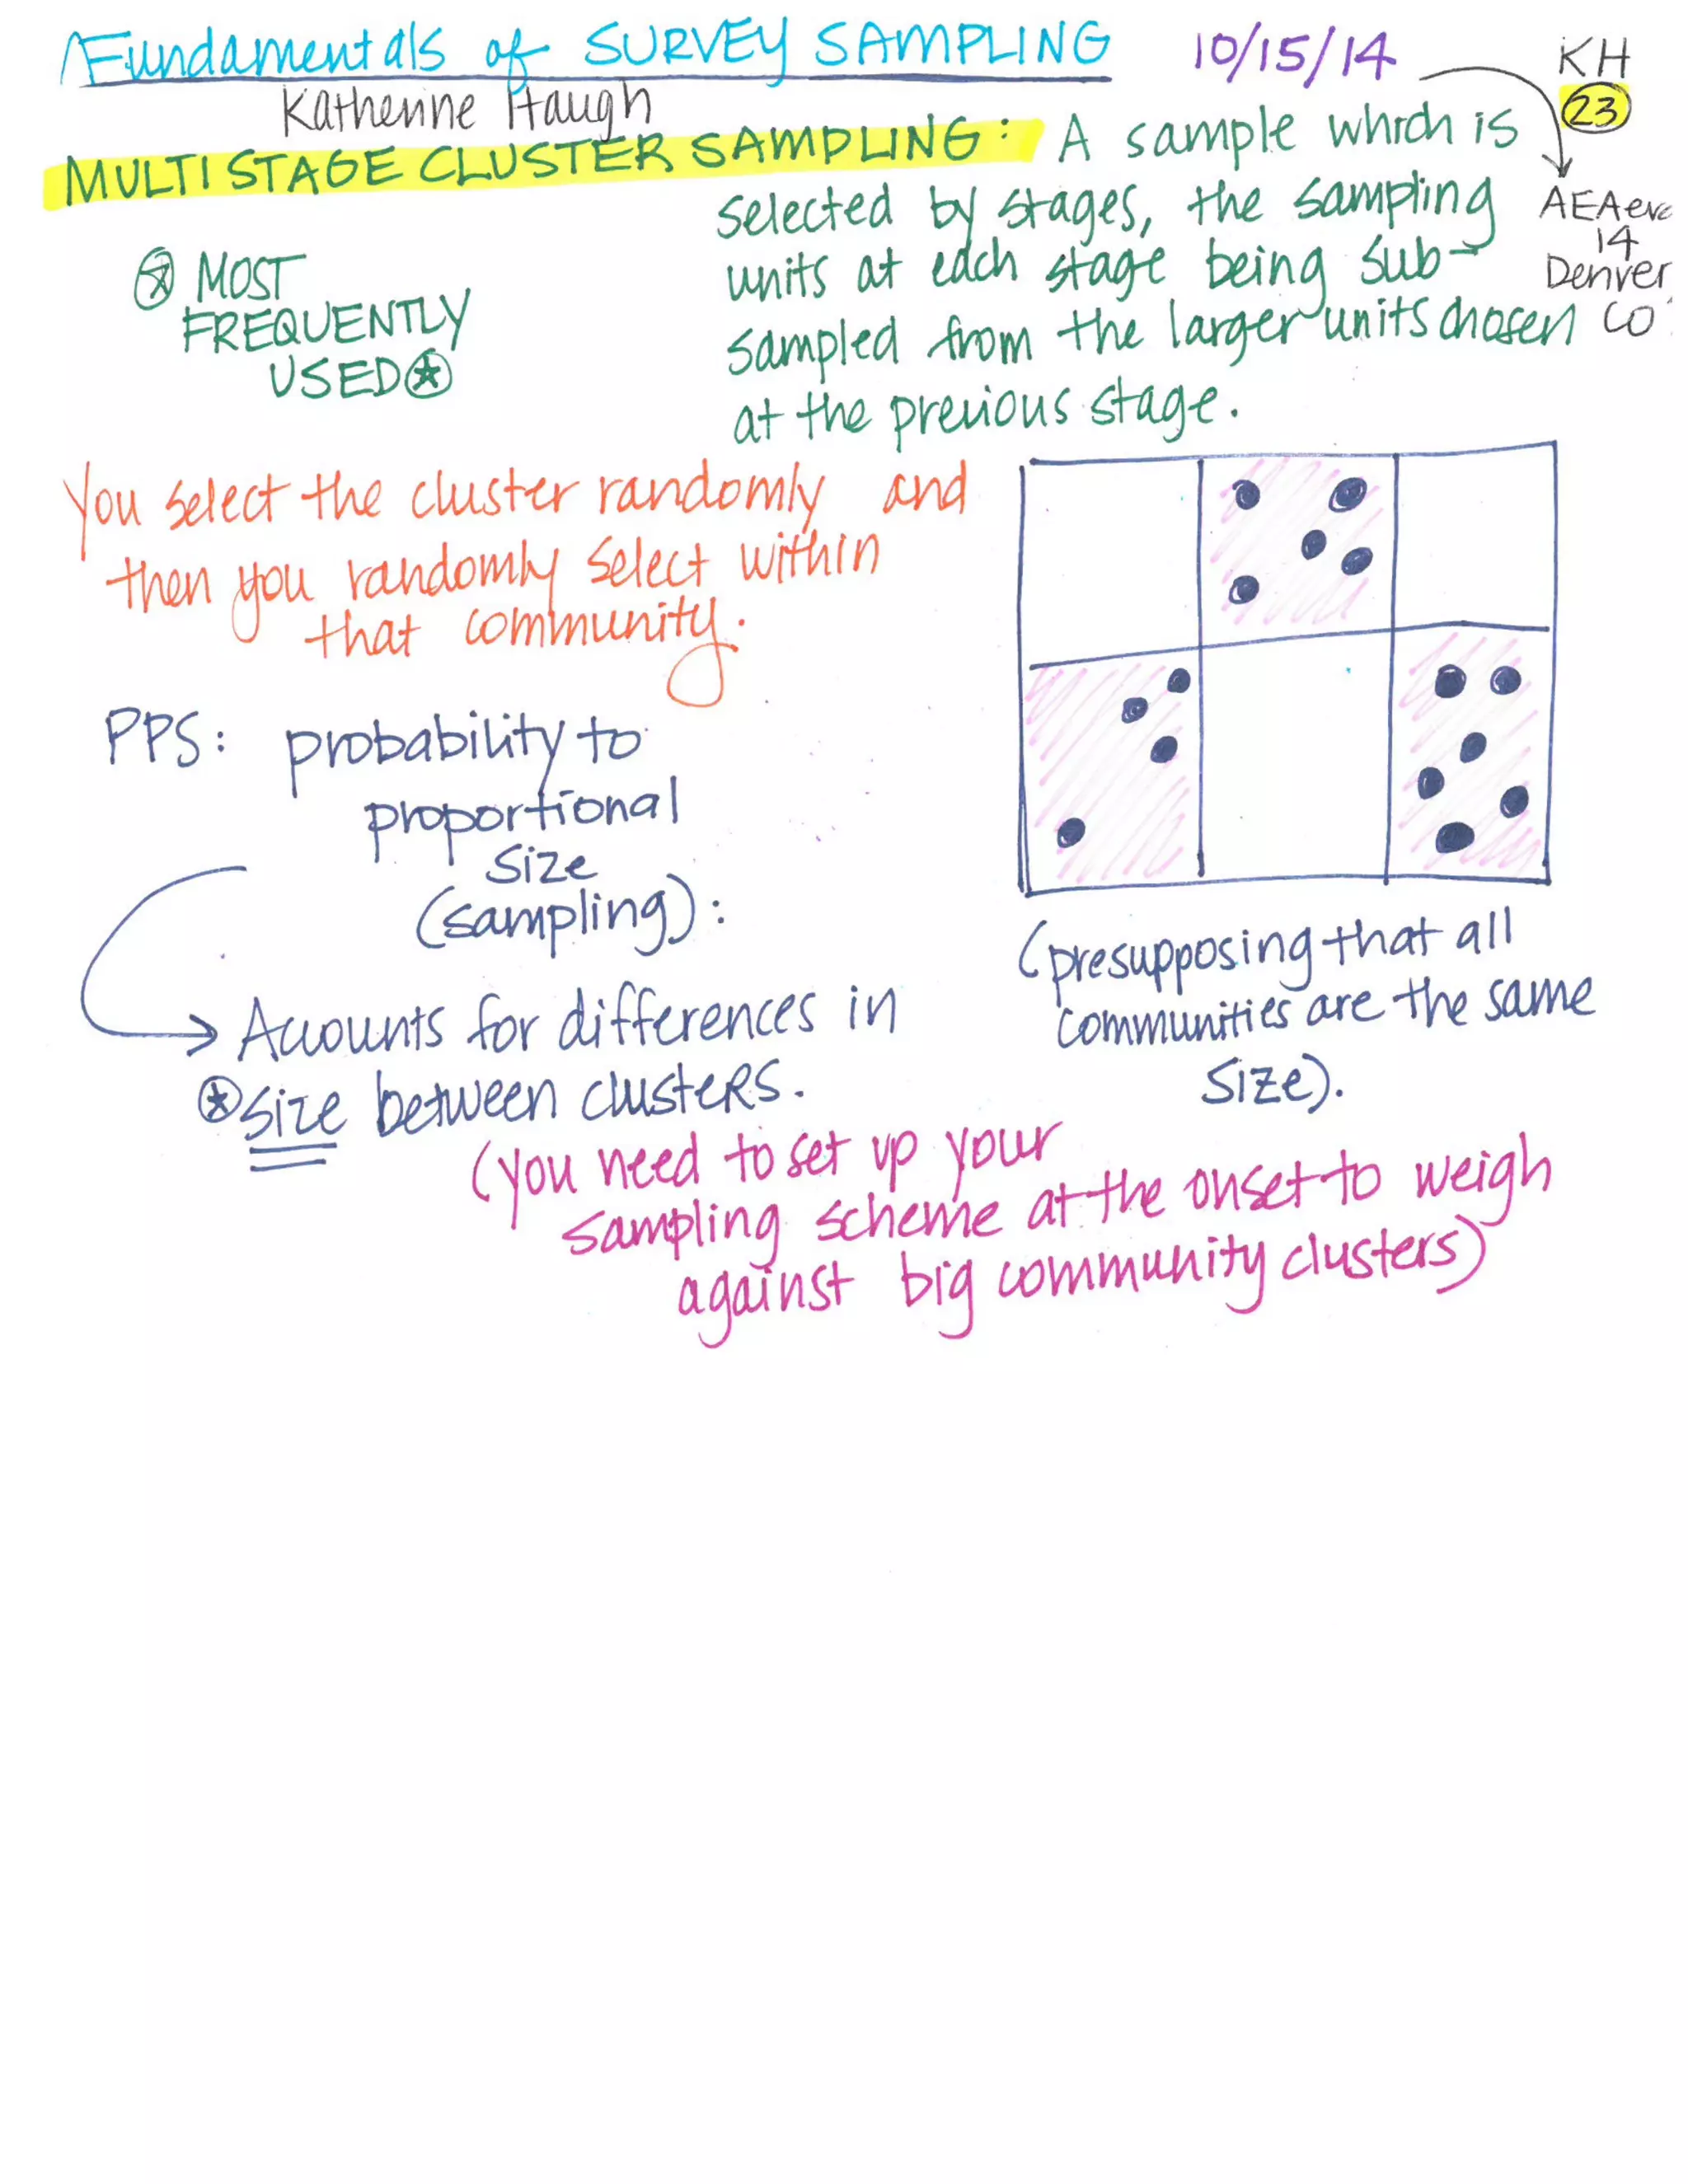 Fundamentals of SURVEY SAMPLING 10/15/14
KH
23
Katherine Haugh
AEAeva
14
Denver
CO
MULTI STAGE CLUSTER SAMPLING: A sample which is
selected by stages, the sampling
units at each stage being sub-
sampled from the larger units chosen
at the previous stage.
MOST
FREQUENTLY
USED
You select the cluster randomly and
then you randomly select within
that community.
PPS: probability to
proportional
size
(sampling):
Accounts for differences in
size between clusters.
(presupposing that all
communities are the same
size).
(you need to set up your
sampling scheme at the onset to weigh
against big community clusters)